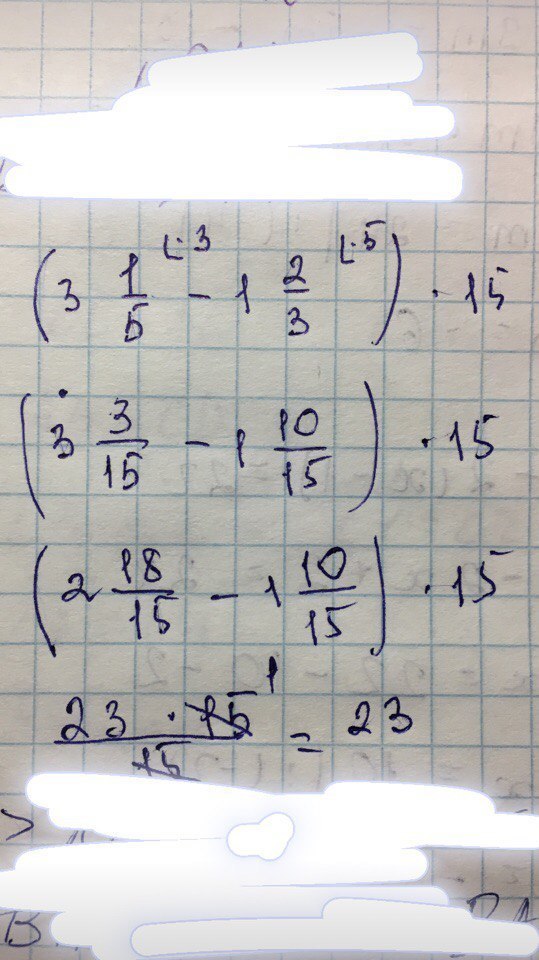 (3 1/5 ⌊·3 - 1 2/3 ⌊·5) · 15
(3 3/15 - 1 10/15) · 15
(2 18/15 - 1 10/15) · 15
23 · 15 1/15 = 23
>
B